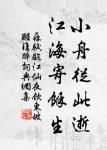 小舟從此逝
江海寄餘生
蘇軾臨江仙夜飲東坡
醒復醉詞典網集